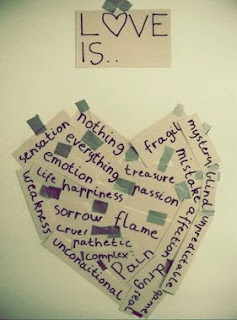 LOVE
IS..
nothing
sensation
everything
emotion
treasure
life
happiness
passion
weakness
sorrow
flame
cruel
pathetic
complex
unconditional
pain
drug
fragile
mystery
mistake
blind
affection
unpredictable
game
real